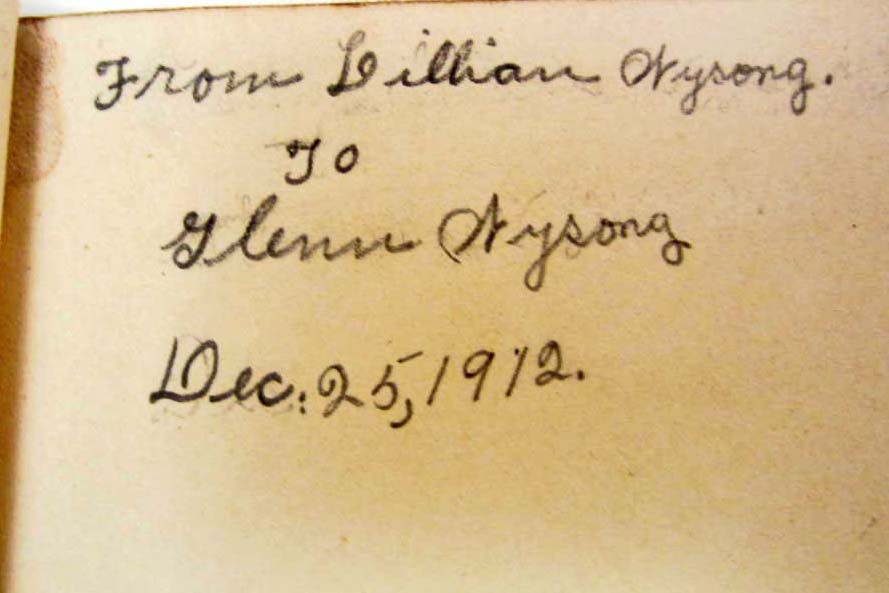 From Lillian Wysong.
To
Glenn Wysong
Dec. 25, 1912.